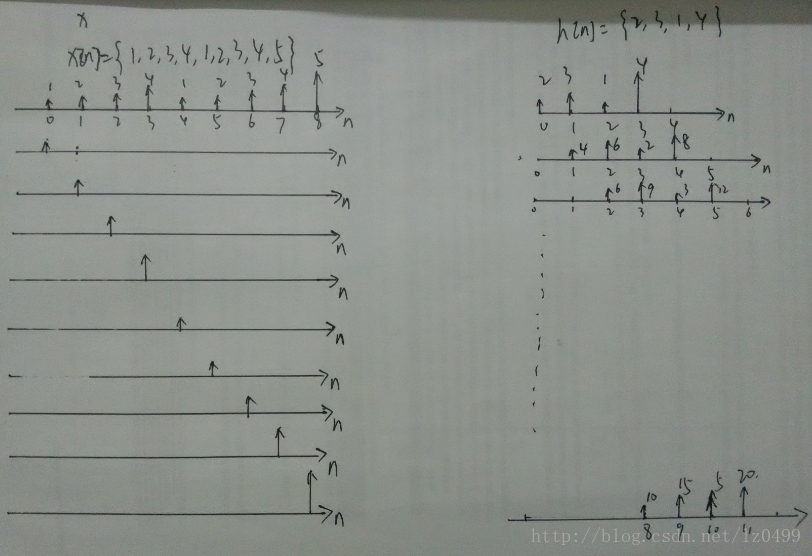 x
x[n]={1,2,3,4,1,2,3,4,5}
1 2 3 4 1 2 3 4 5
0 1 2 3 4 5 6 7 8 n
n
n
n
n
n
n
n
n
n
h[n]={2,3,1,4}
2 3 1 4
0 1 2 3 4 n
4 6 2 8
0 1 2 3 4 5 n
6 9 3 12
0 1 2 3 4 5 6
10 15 5 20
8 9 10 11
http://blog.csdn.net/lz0499